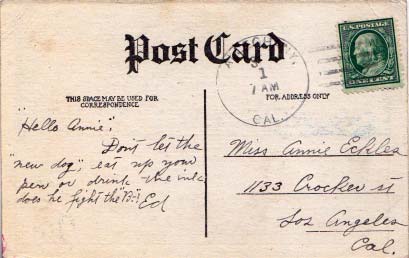 Post Card
U.S. POSTAGE
1
7 AM
CAL.
ONE CENT
THIS SPACE MAY BE USED FOR
CORRESPONDENCE
FOR ADDRESS ONLY
"Hello Annie".
Don't let the
"new dog", eat up your
pen or drink the ink,
does he fight the
Ed
Miss Annie Eckles
1133 Crocker st
Los Angeles
Cal.